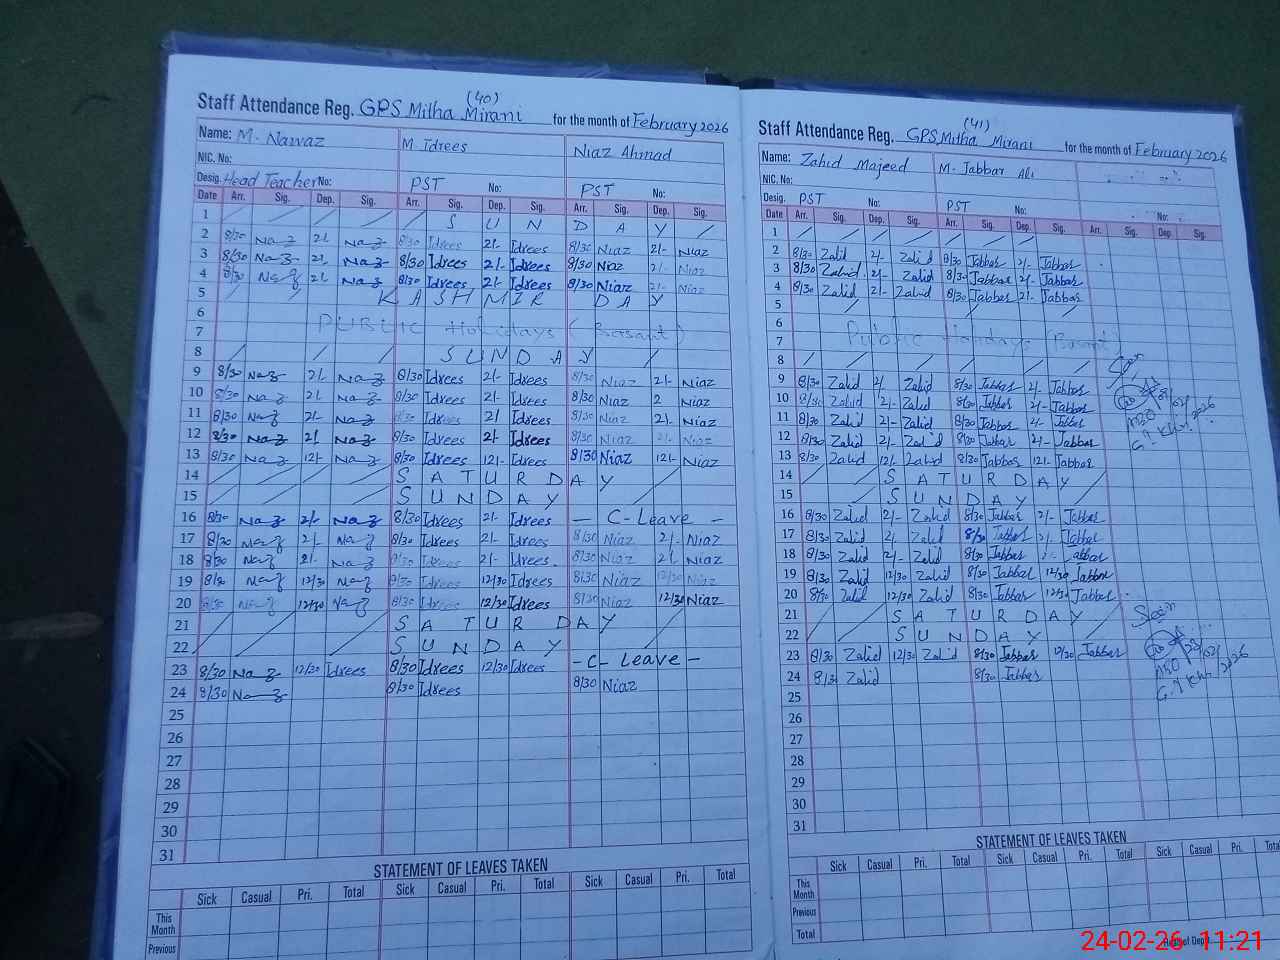 (40)
Staff Attendance Reg. GPS Mitha Mirani for the month of February 2026
Name: M. Nawaz M Idrees Niaz Ahmad
NIC. No:
Desig. Head Teacher No: PST No: PST No:
Date Arr. Sig. Dep. Sig. Arr. Sig. Dep. Sig. Arr. Sig. Dep. Sig.
1 S U N D A Y
2 8/30 Naz 2/- Naz 8/30 Idrees 2/- Idrees 8/30 Niaz 2/- Niaz
3 8/30 Naz 2/- Naz 8/30 Idrees 2/- Idrees 8/30 Niaz 2/- Niaz
4 8/30 Naz 2/- Naz 8/30 Idrees 2/- Idrees 8/30 Niaz 2/- Niaz
5 K A S H M I R D A Y
6
7 PUBLIC Holidays (Basant)
8 S U N D A Y
9 8/30 Naz 2/- Naz 8/30 Idrees 2/- Idrees 8/30 Niaz 2/- Niaz
10 8/30 Naz 2/- Naz 8/30 Idrees 2/- Idrees 8/30 Niaz 2 Niaz
11 8/30 Naz 2/- Naz 8/30 Idrees 2/ Idrees 8/30 Niaz 2/- Niaz
12 8/30 Naz 2/ Naz 8/30 Idrees 2/- Idrees 8/30 Niaz 2/- Niaz
13 8/30 Naz 12/- Naz 8/30 Idrees 12/- Idrees 8/30 Niaz 12/- Niaz
14 S A T U R D A Y
15 S U N D A Y
16 8/30 Naz 2/- Naz 8/30 Idrees 2/- Idrees - C-Leave -
17 8/30 Naz 2/- Naz 8/30 Idrees 2/- Idrees 8/30 Niaz 2/- Niaz
18 8/30 Naz 2/- Naz 8/30 Idrees 2/- Idrees. 8/30 Niaz 2/ Niaz
19 8/30 Naz 12/30 Naz 8/30 Idrees 12/30 Idrees 8/30 Niaz 12/30 Niaz
20 8/30 Naz 12/30 Naz 8/30 Idrees 12/30 Idrees 8/30 Niaz 12/30 Niaz
21 S A T U R D A Y
22 S U N D A Y
23 8/30 Naz 12/30 Idrees 8/30 Idrees 12/30 Idrees -C- Leave -
24 8/30 Naz 8/30 Idrees 8/30 Niaz
25
26
27
28
29
30
31
STATEMENT OF LEAVES TAKEN
Sick Casual Pri. Total Sick Casual Pri. Total Sick Casual Pri. Total
This Month
Previous
(41)
Staff Attendance Reg. GPS Mitha Mirani for the month of February 2026
Name: Zahid Majeed M. Jabbar Ali
NIC. No:
Desig. PST No: PST No: No:
Date Arr. Sig. Dep. Sig. Arr. Sig. Dep. Sig. Arr. Sig. Dep. Sig.
1
2 8/30 Zahid 2/- Zahid 8/30 Jabbar 2/- Jabbar
3 8/30 Zahid 2/- Zahid 8/30 Jabbar 2/- Jabbar
4 8/30 Zahid 2/- Zahid 8/30 Jabbar 2/- Jabbar
5
6
7 Public Holidays (Basant)
8
9 8/30 Zahid 2/ Zahid 8/30 Jabbar 2/- Jabbar
10 8/30 Zahid 2/- Zahid 8/30 Jabbar 2/- Jabbar
11 8/30 Zahid 2/- Zahid 8/30 Jabbar 2/- Jabbar
12 8/30 Zahid 2/- Zahid 8/30 Jabbar 2/- Jabbar
13 8/30 Zahid 12/- Zahid 8/30 Jabbar 12/- Jabbar
14 S A T U R D A Y
15 S U N D A Y
16 8/30 Zahid 2/- Zahid 8/30 Jabbar 2/- Jabbar
17 8/30 Zahid 2/ Zahid 8/30 Jabbar 2/- Jabbar
18 8/30 Zahid 2/- Zahid 8/30 Jabbar Jabbar
19 8/30 Zahid 12/30 Zahid 8/30 Jabbar 12/30 Jabbar
20 8/30 Zahid 12/30 Zahid 8/30 Jabbar 12/30 Jabbar
21 S A T U R D A Y
22 S U N D A Y
23 8/30 Zahid 12/30 Zahid 8/30 Jabbar 12/30 Jabbar
24 8/30 Zahid 8/30 Jabbar
25
26
27
28
29
30
31
STATEMENT OF LEAVES TAKEN
Sick Casual Pri. Total Sick Casual Pri. Total Sick Casual Pri. Total
This Month
Previous
Total
24-02-26 11:21